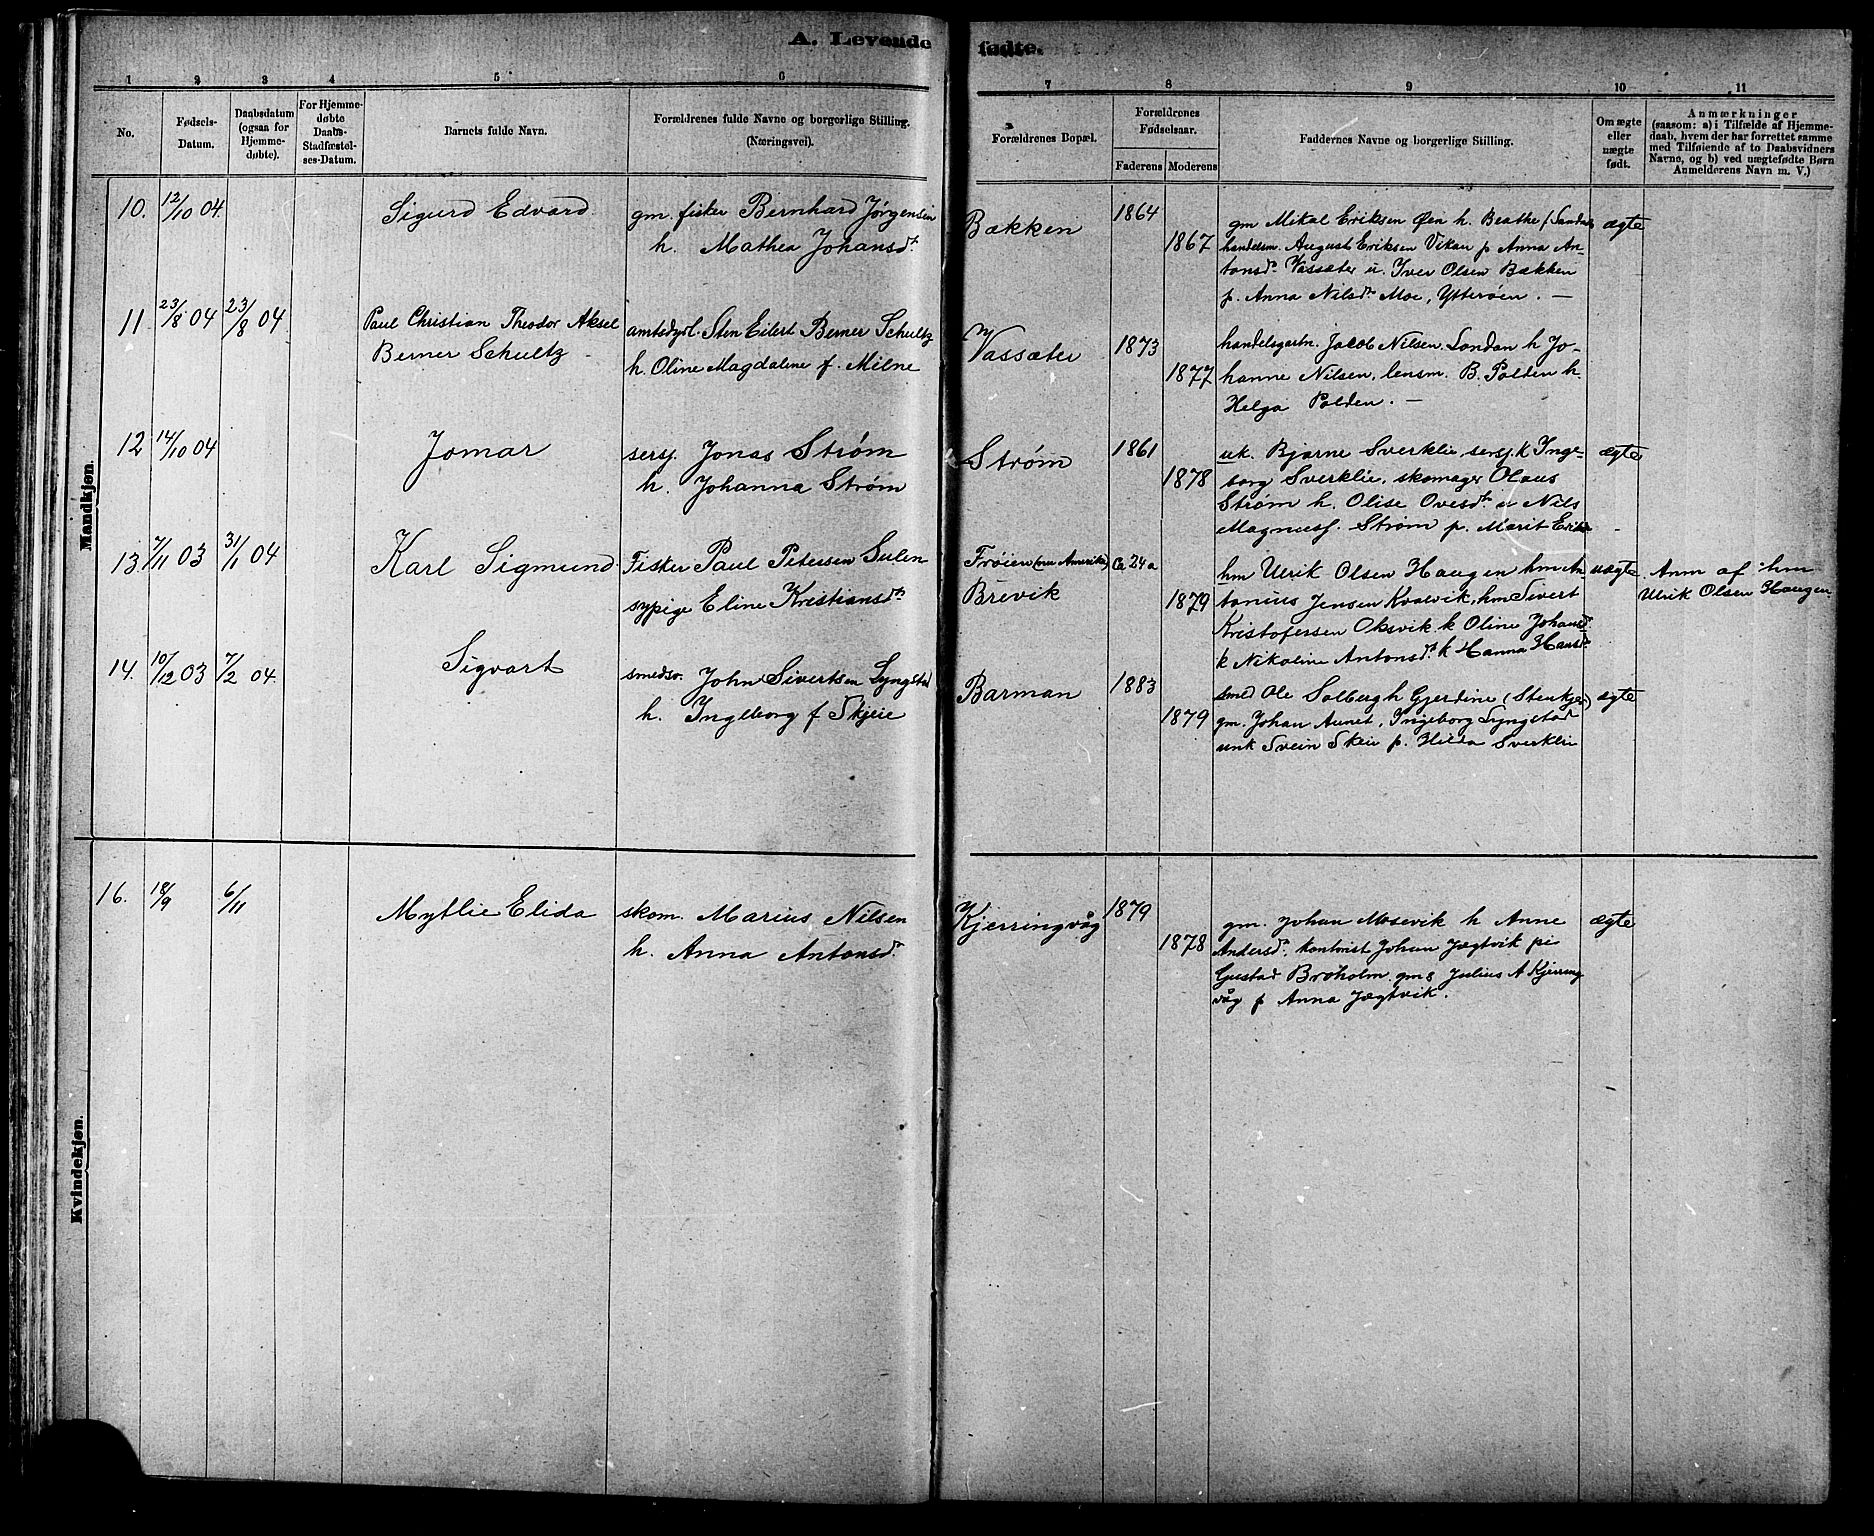 A. Levende fødte.
1 2 3 4 5 6 7 8 9 10 11
No.
Fødsels-
Datum.
Daabsdatum
(ogsaa for
Hjemme-
døbte).
For Hjemme-
døbte
Daabs-
Stadfæstel-
ses-Datum.
Barnets fulde Navn.
Forældrenes fulde Navne og borgerlige Stilling.
(Næringsvei).
Forældrenes Bopæl.
Forældrenes
Fødselsaar.
Faderens Moderens
Faddernes Navne og borgerlige Stilling.
Om ægte
eller
uægte
født.
Anmærkninger
(saasom: a) i Tilfælde af Hjemme-
daab, hvem der har forrettet samme
med Tilføiende af to Daabsvidners
Navne, og b) ved uægtefødte Børn
Anmelderens Navn m. V.)
Mandkjøn.
10. 12/10 04 Sigurd Edvard gm. fisker Bernhard Jørgensen
h. Mathea Johansdt.
Bækken 1864 1867
gm Mikal Eriksen Øen h. Beathe / Sandnes
handelsm. August Eriksen Vikan p Anna An-
tonsdt. Vassæter u. Iver Olsen Bækken
p. Anna Nilsdt. Moe, Ytterøen. —
ægte
11 23/8 04 23/8 04 Paul Christian Theodor Aksel
Berner Schultz
amtsdyrl. Sten Eilert Berner Schultz
h. Oline Magdalene f. Milne
Vassæter 1873 1877
handelsgartn. Jacob Nilsen. London h Jo-
hanne Nilsen, lensm. B. Polden h
Helga Polden. —
12 14/10 04 Jomar sersj. Jonas Strøm
h. Johanna Strøm
Strøm 1861 1878
uk. Bjarne Sverklie sersj. k Inge-
borg Sverklie, skomager Olaus
Strøm h. Olise Ovesdt. u Nils
Magnus J. Strøm p. Marit Eriks
ægte
13. 7/11 03 31/1 04 Karl Sigmund Fisker Paul Petersen Sulen
sypige Eline Kristiansdt.
Frøien (nu Amerika) Brevik Ca 24 a 1879
hm Ulrik Olsen Haugen hm An-
tonius Jensen Kvalvik, hm Sivert
Kristofersen Oksvik k Oline Johansdt.
k Nikoline Antonsdt. k Hanna Hansdt.
uægte Anm af hm
Ulrik Olsen Haugen
14. 10/12 03 7/2 04. Sigvart smedsv. John Sivertsen Lyngstad
h. Ingeborg f Skjeie
Barman 1883 1879
smed Ole Solberg h Gjerdine (Stenkjer)
gm. Johan Aunet, Ingeborg Lyngstad
unk Svein Skeie p. Hilda Sverklie
ægte
Kvindekjøn.
16. 18/9 6/11 Myflie Elida skom. Marius Nilsen
h. Anna Antonsdt.
Kjerringvåg 1879 1878
gm. Johan Mosevik h Anne
Andersdt. kontorist Johan Jægtvik pi
Gustad Broholm. gms Julius A Kjerring
våg p Anna Jægtvik.
ægte